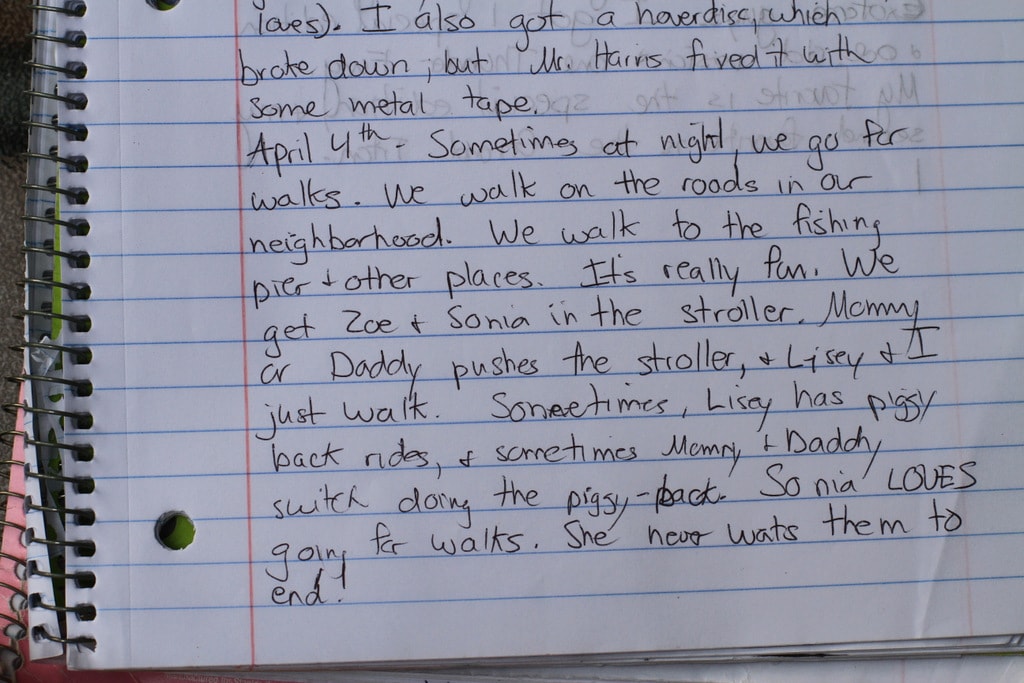 loves). I also got a hoverdisc, which
broke down, but Mr. Harris fixed it with
some metal tape.
April 4th - Sometimes at night, we go for
walks. We walk on the roads in our
neighborhood. We walk to the fishing
pier + other places. It's really fun. We
get Zoe + Sonia in the stroller. Mommy
or Daddy pushes the stroller, + Lisey + I
just walk. Sometimes, Lisey has piggy
back rides, + sometimes Mommy + Daddy
switch doing the piggy-back. Sonia LOVES
going for walks. She never wats them to
end!